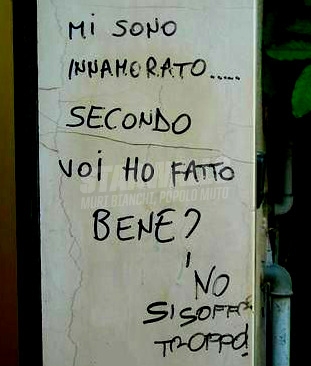 Mi SONO
INNAMORATO.....
SECONDO
VOi HO FATTO
BENE?
NO
SI SOFFRE
TROPPO!
MURI BIANCHI, POPOLO MUTO